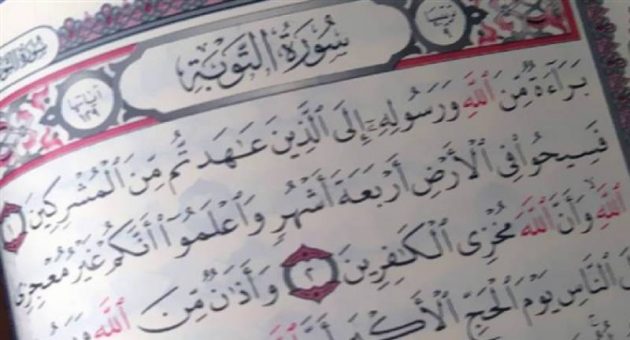 سُورَةُ التَّوْبَةِ
بَرَآءَةٌ مِّنَ ٱللَّهِ وَرَسُولِهِۦٓ إِلَى ٱلَّذِينَ عَـٰهَدتُّم مِّنَ ٱلْمُشْرِكِينَ ١
فَسِيحُوا۟ فِى ٱلْأَرْضِ أَرْبَعَةَ أَشْهُرٍ وَٱعْلَمُوٓا۟ أَنَّكُمْ غَيْرُ مُعْجِزِى
ٱللَّهِ وَأَنَّ ٱللَّهَ مُخْزِى ٱلْكَـٰفِرِينَ ٢ وَأَذَٰنٌ مِّنَ ٱللَّهِ
ٱلنَّاسِ يَوْمَ ٱلْحَجِّ